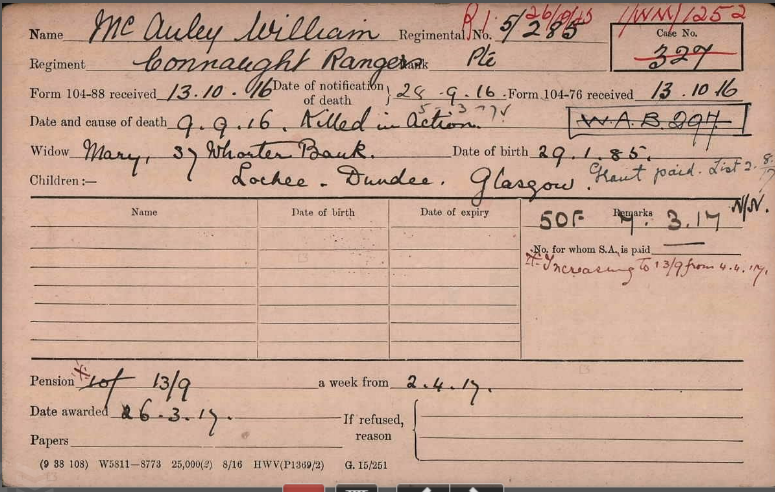 R/ 26/10/15 1/WM/1252
Name Mc Auley William Regimental No. 5/285 Case No.
327
Regiment Connaught Rangers Rank Pte
Form 104-88 received 13.10.16 Date of notification of death } 28.9.16. Form 104-76 received 13.10.16
Date and cause of death 9.9.16. Killed in Action. W.A.B. 297
Widow Mary, 37 Whorter Bank. Date of birth 29.1.85.
Children:— Lochee - Dundee. Glasgow. Grant paid. List 2.
Name Date of birth Date of expiry Remarks
SOF 7. 3.17 N/N.
No. for whom S.A. is paid
Increasing to 13/9 from 4.4.17.
Pension 10/- 13/9 a week from 2.4.17.
Date awarded 26.3.17. If refused, reason
Papers
(9 38 108) W5811—8773 25,000(2) 8/16 HWV(P1369/2) G. 15/251